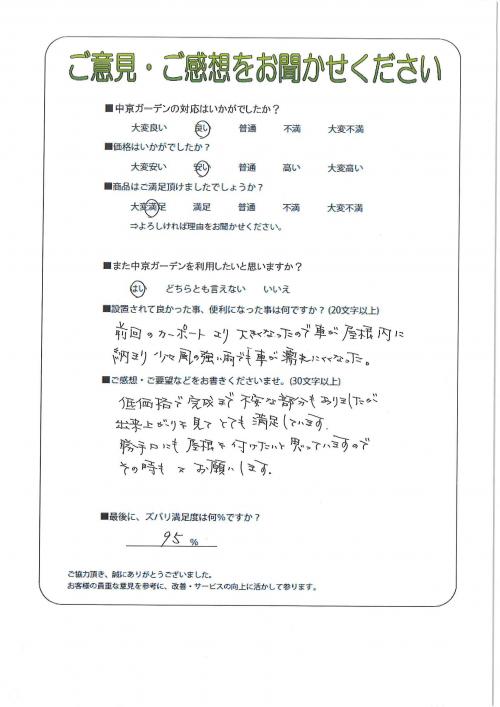 ご意見・ご感想をお聞かせください
■中京ガーデンの対応はいかがでしたか？
大変良い 良い 普通 不満 大変不満
■価格はいかがでしたか？
大変安い 安い 普通 高い 大変高い
■商品はご満足頂けましたでしょうか？
大変満足 満足 普通 不満 大変不満
⇒よろしければ理由をお聞かせください。
■また中京ガーデンを利用したいと思いますか？
はい どちらとも言えない いいえ
■設置されて良かった事、便利になった事は何ですか？(20文字以上)
前回のカーポートより大きくなったので車が屋根内に
納まり 少々風の強い雨でも車が濡れにくくなった。
■ご感想・ご要望などをお書きくださいませ。(30文字以上)
低価格で完成まで不安な部分もありましたが
出来上がりを見てとても満足しています。
勝手口にも屋根を付けたいと思っていますので
その時も お願いします。
■最後に、ズバリ満足度は何%ですか？
95 %
ご協力頂き、誠にありがとうございました。
お客様の貴重な意見を参考に、改善・サービスの向上に活かして参ります。